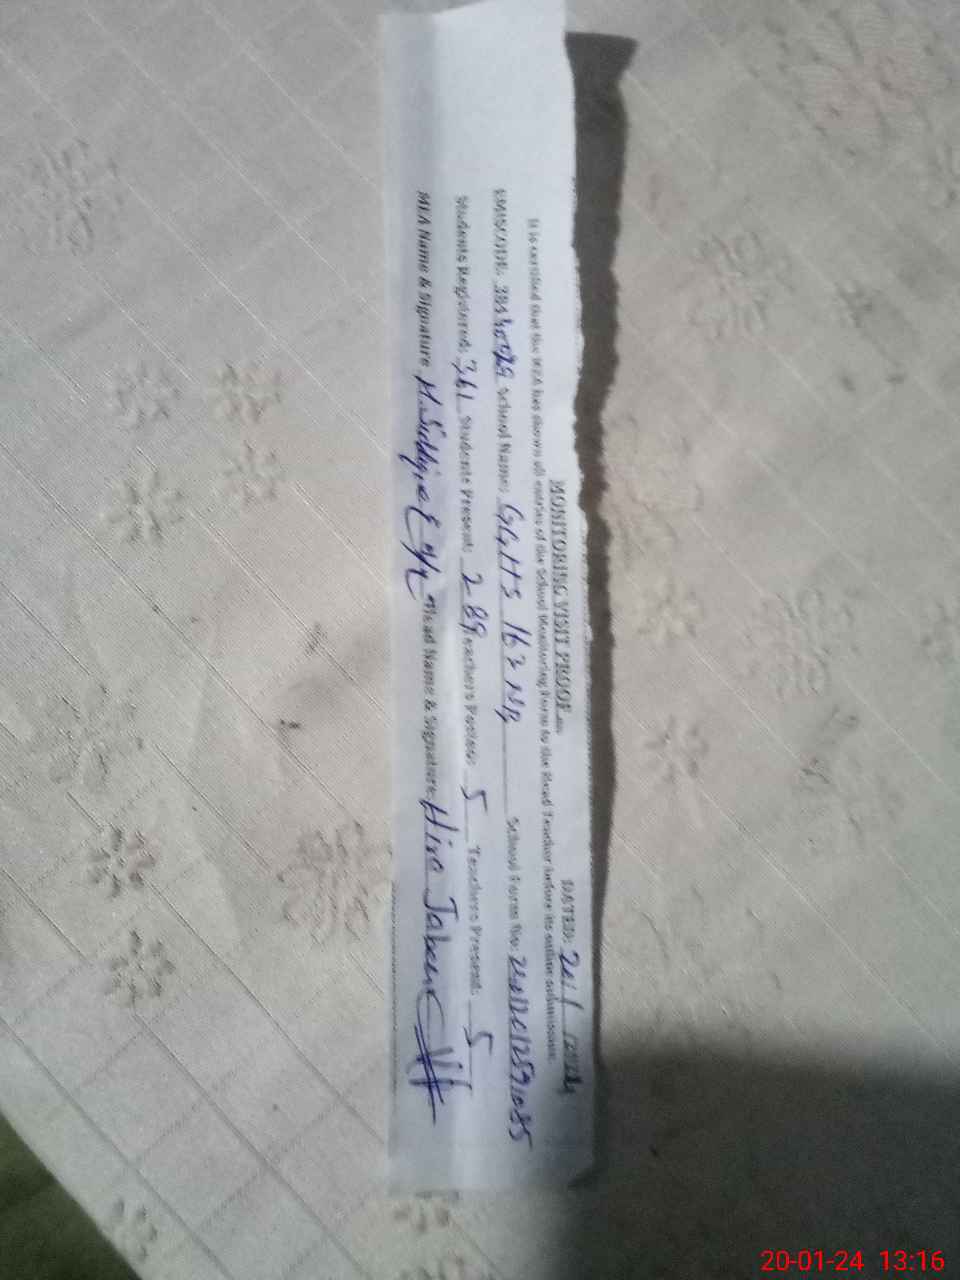 MONITORING VISIT PROOF DATED: 20/1/2024
It is certified that the MEA has shown all entries of the School Monitoring Form to the Head Teacher before its online submission.
EMISCODE: School Name: GGHS 162 NB School Form No:
Students Registered: 361 Students Present: 289 Teachers Posted: 5 Teachers Present: 5
MEA Name & Signature H. Siddiq Head Name & Signature: Hira Jabeen
20-01-24 13:16